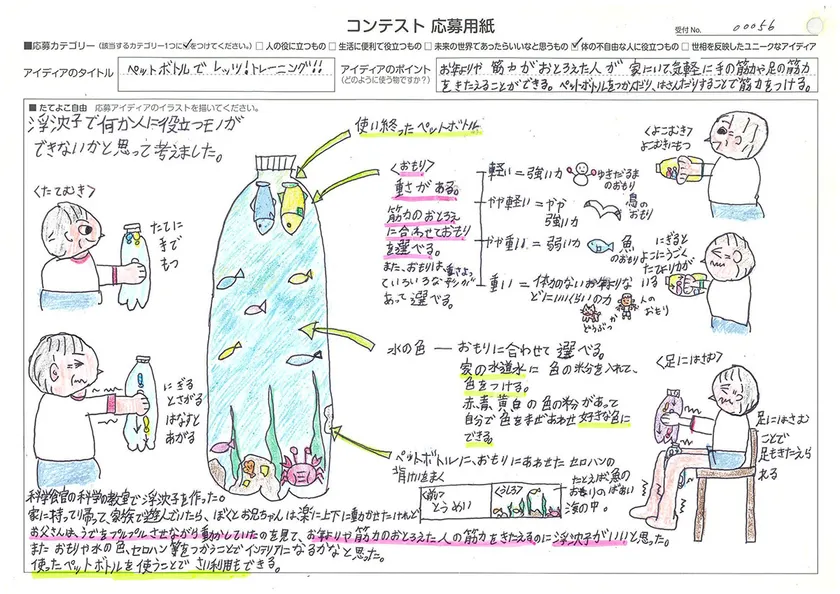 コンテスト 応募用紙
受付No. 00056
■応募カテゴリー (該当するカテゴリー1つに✓をつけてください。) □人の役に立つもの □生活に便利で役立つもの □未来の世界であったらいいなと思うもの ✓体の不自由な人に役立つもの □世相を反映したユニークなアイディア
アイディアのタイトル
ペットボトルで レッツ!トレーニング!!
アイディアのポイント
(どのように使う物ですか?)
お年よりや 筋力がおとろえた人が 家にいて気軽に手の筋力や足の筋力
をきたえることができる。ペットボトルをつかんだり、はさんだりすることで筋力をつける。
■たてよこ自由 応募アイディアのイラストを描いてください。
浮沈子で何か人に役立つモノが
できないかと思って考えました。
使い終ったペットボトル
<たてむき>
たてに
手で
もつ
にぎる
とさがる
はなすと
あがる
<おもり>
重さがある。
筋力のおとろえ
に合わせておもり
を選べる。
また、おもりは、重さよって
いろいろな形が
あって 選べる。
軽い=強い力
ゆきだるま
のおもり
やや軽い=やや
強い力
鳥の
おもり
やや重い=弱い力
魚
のおもり
重い=体力のないお年よりな
どにいいくらいの力
どうぶつ
か
人の
おもり
<よこむき>
よこむきにもつ
にぎると
よこにうごく
たてよりカが
いる
水の色 — おもりに合わせて 選べる。
家の水道水に 色の粉を入れて、
色をつける。
赤、青、黄、白 の 色の粉が あって
自分で 色をまぜあわせ 好きな色に
できる。
<足にはさむ>
足にはさむ
ことで
足もきたえら
れる
ペットボトルに、おもりにあわせた セロハンの
背けいをまく
<前>
とうめい
<うしろ>
たとえば 魚の
おもりのばあい
海の中。
科学館の科学の教室で浮沈子を作った。
家に持って帰って、家族で遊んでいたら、ぼくとお兄ちゃんは、楽に上下に動かせたけれど
お父さんは、うでをプルプルさせながら動かしていたのを見て、お年よりや筋力のおとろえた人の筋力をきたえるのに浮沈子がいいと思った。
また おもりや水の色、セロハン等をつかうことでインテリアになるかなと思った。
使ったペットボトルを使うことで さい利用もできる。